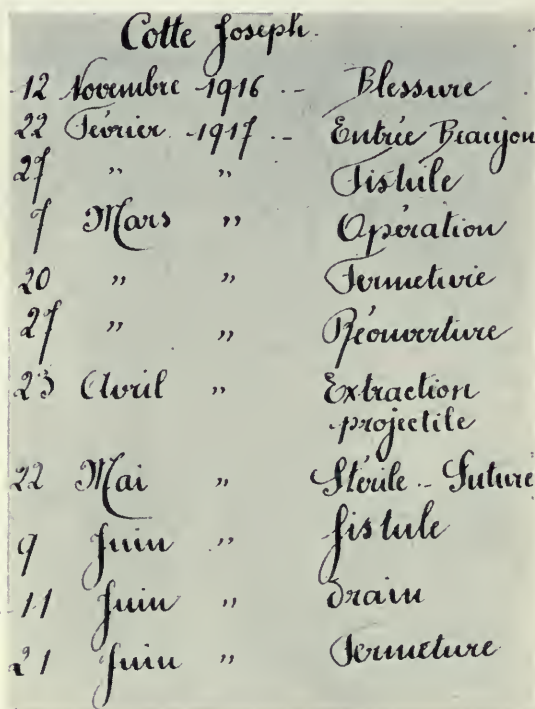 Cotte Joseph.
12 Novembre 1916 .. Blessure
22 Février 1917 .. Entrée Beaujon
27 " " Fistule
7 Mars " Opération
20 " " Fermeture
27 " " Réouverture
23 Avril " Extraction
projectile
22 Mai " Stérile .. Suture
9 Juin " fistule
11 Juin " drain
21 Juin " Fermeture